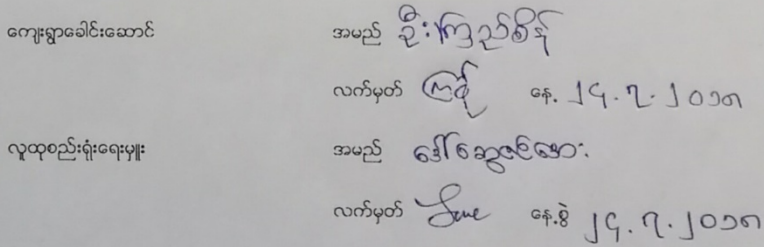 ကျေးရွာခေါင်းဆောင် အမည် ဦးကြည်စိန်
လက်မှတ် နေ့. ၂၄.၇.၂၀၁၈
လူထုစည်းရုံးရေးမှူး အမည် ဒေါ်ဆွေဇင်အေး
လက်မှတ် နေ့.စွဲ ၂၄.၇.၂၀၁၈